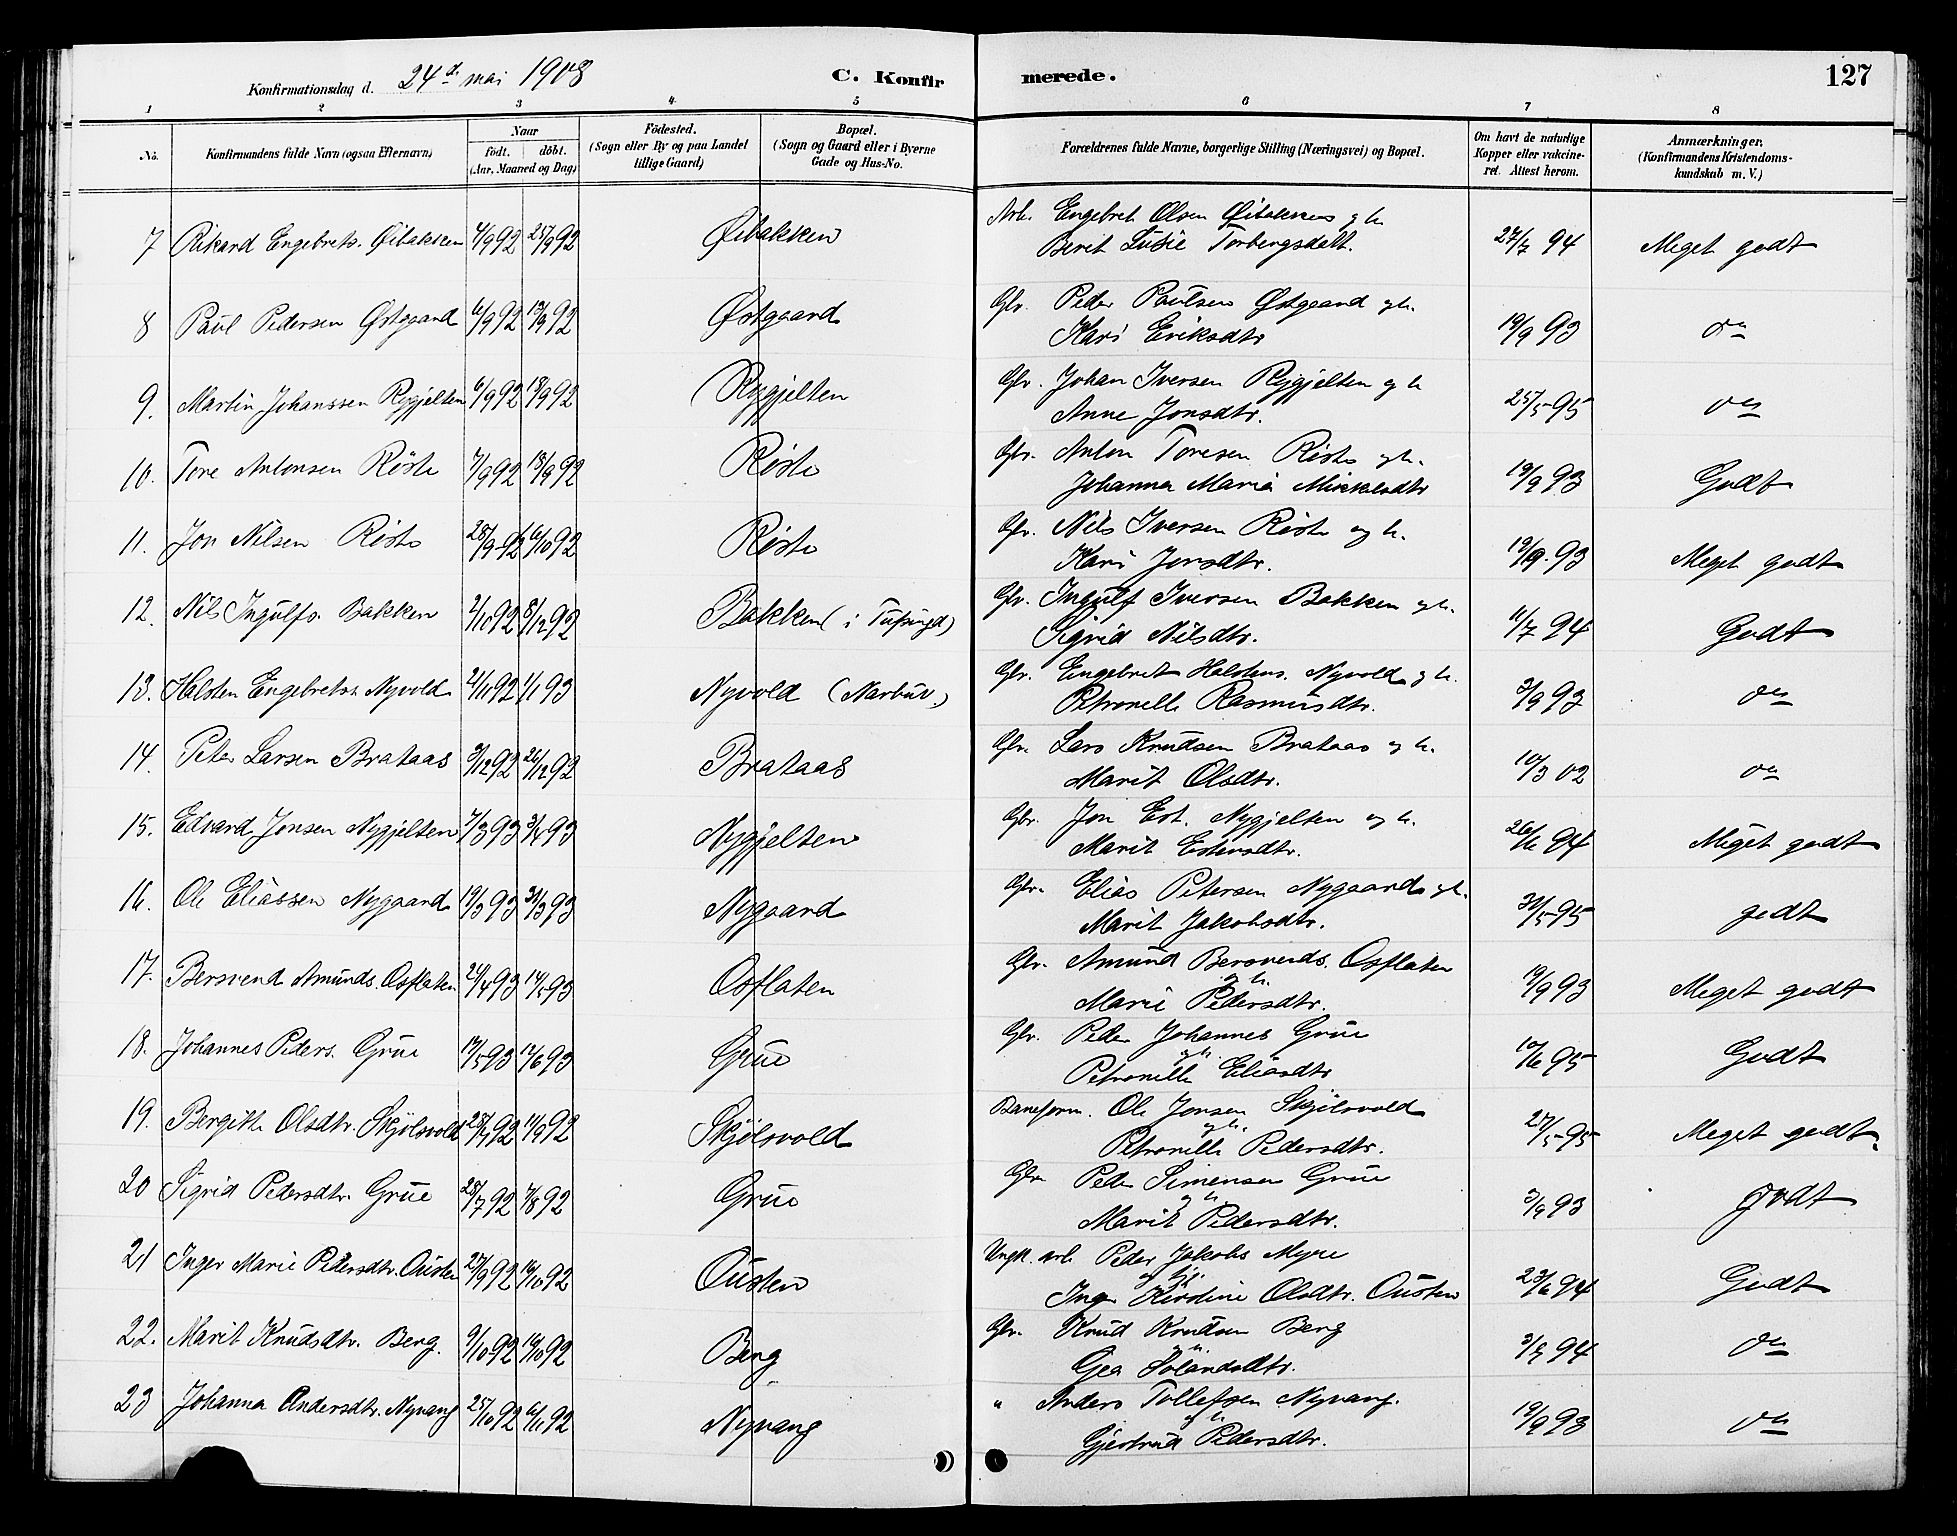 Konfirmationsdag d. 24de mai 1908 C. Konfirmerede. 127
1 2 3 4 5 6 7 8
No. Konfirmandens fulde Navn (ogsaa Efternavn) Naar født. døbt. (Aar, Maaned og Dag) Fødested. (Sogn eller By og paa Landet tillige Gaard) Bopæl. (Sogn og Gaard eller i Byerne Gade og Hus-No. Forældrenes fulde Navne, borgerlige Stilling (Næringsvei) og Bopæl. Om havt de naturlige Kopper eller vakcineret. Attest herom. Anmærkninger, (Konfirmandens Kristendomskundskab m. V.)
7 Rikard Engebrets. Øibakken 4/9 92 25/9 92 Øibakken Arb. Engebret Olsen Øibakken og h. Berit Lusie Torbergsdatt. 27/7 94 Meget godt
8 Paul Pedersen Østgaard 6/9 92 18/9 92 Østgaard Gbr. Peder Paulsen Østgaard og h. Kari Eriksdtr 19/9 93 do
9. Martin Johanssen Rygjelten 6/9 92 18/9 92 Rygjelten Gbr. Johan Iversen Rygjelten og h Anne Jonsdtr. 25/5 95 do
10. Tore Antonsen Røste 7/9 92 18/9 92 Røste Gbr. Anton Toresen Røste og h. Johanna Maria Mikkelsdtr 19/9 93 Godt
11. Jon Nilsen Røste 28/9 92 16/10 92 Røste Gbr. Nils Iversen Røste og h. Kari Jonsdtr. 19/9 93 Meget godt
12. Nils Ingulfs. Bakken 2/10 92 8/12 92 Bakken (i Tufsingd) Gbr. Ingulf Iversen Bakken og h. Sigrid Nilsdtr. 11/7 94 Godt
13. Halsten Engebretsn Nyvold 21/11 92 1/1 93 Nyvold (Narbuv.) Gbr. Engebret Halstens. Nyvold og h. Petronille Rasmusdtr. 3/9 93 do
14. Peter Larsen Brataas 3/12 92 26/12 92 Brataas Gbr. Lars Knudsen Brataas og h. Marit Olsdtr. 10/3 02 do
15. Edvard Jonsen Nygjelten 7/3 93 3/4 93 Nygjelten Gbr. Jon Est. Nygjelten og h. Marit Estensdtr. 26/6 94 Meget godt
16. Ole Eliassen Nygaard 19/3 93 31/3 93 Nygaard Gbr. Elias Petersen Nygaard og h. Marit Jakobsdtr. 31/5 95 godt
17. Bersvend Amunds. Osflaten 21/4 93 14/5 93 Osflaten Gbr. Amund Bersvends. Osflaten og h. Marie Pedersdtr. 19/9 93 Meget godt
18. Johannes Peders. Grue 17/5 93 12/6 93 Grue Gbr. Peder Johannes Grue og h. Petronille Eliasdtr 10/6 95 Godt
19. Bergitte Olsdtr. Skjølsvold 25/7 92 11/9 92 Skjølsvold Baneform. Ole Jonsen Skjølsvold og h. Petronille Pedersdtr. 27/5 95 Meget godt
20 Sigrid Pedersdtr. Grue 28/7 92 7/8 92 Grue Gbr. Peder Simensen Grue og h Marit Pedersdtr. 3/9 93 godt
21 Inger Marie Pedersdtr. Ousten 27/9 92 16/10 92 Ousten Ungk. arb. Peder Jakobs Myre og Inger Kirstine Olsdtr. Ousten 23/6 94 Godt
22. Marit Knudsdtr. Berg. 9/10 92 16/10 92 Berg Gbr. Knud Knudsen Berg og h. Gea 3/9 94 do
23 Johanna Andersdtr. Nyvang 25/10 92 6/11 92 Nyvang " Anders Tollefsen Nyvang. og h Gjertrud Pedersdtr. 19/9 93 do